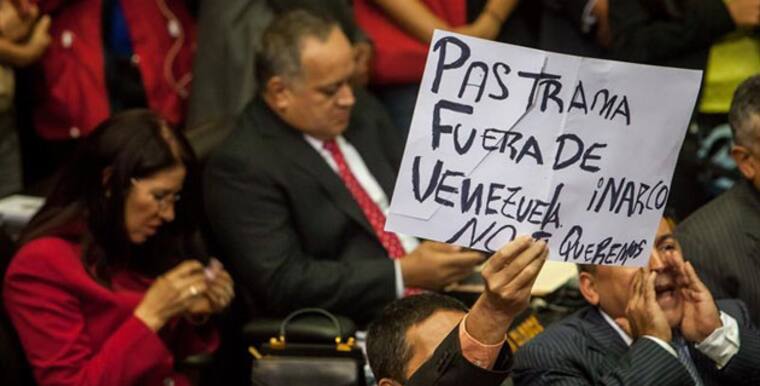 PASTRAMA
FUERA DE
VENEZUELA. ¡NARCO
NO TE QUEREMOS